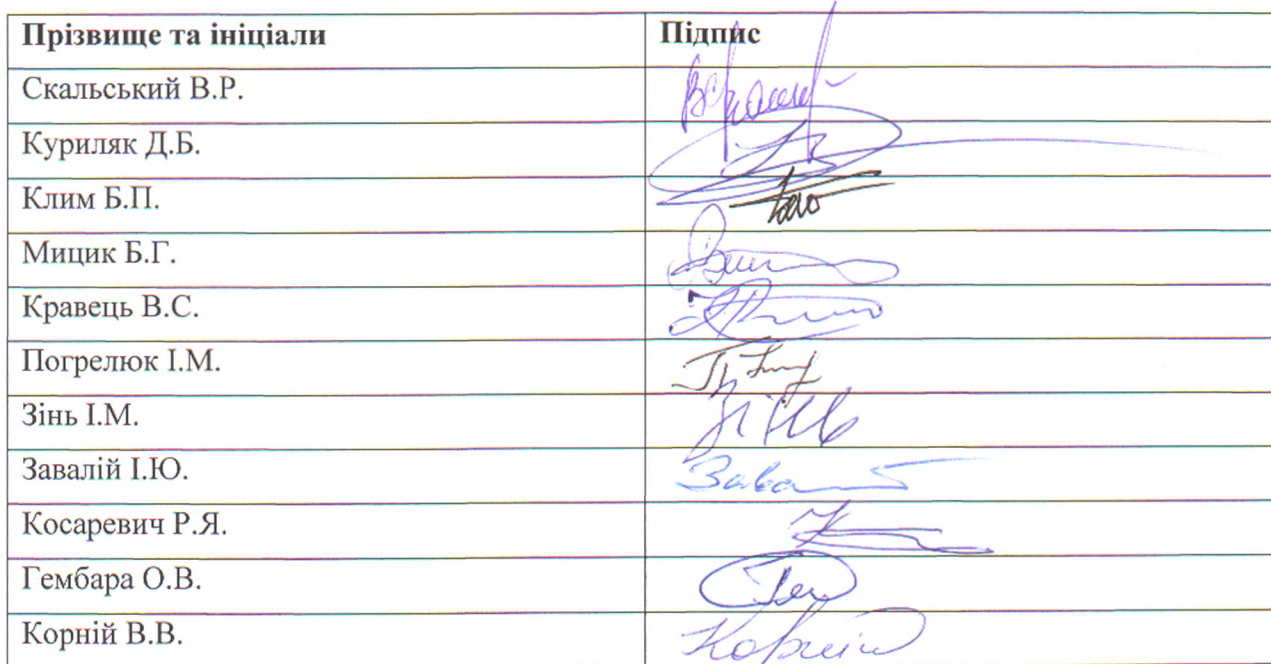 Прізвище та ініціали Підпис
Скальський В.Р.
Куриляк Д.Б.
Клим Б.П.
Мицик Б.Г.
Кравець В.С.
Погрелюк І.М.
Зінь І.М.
Завалій І.Ю.
Косаревич Р.Я.
Гембара О.В.
Корній В.В. Корній